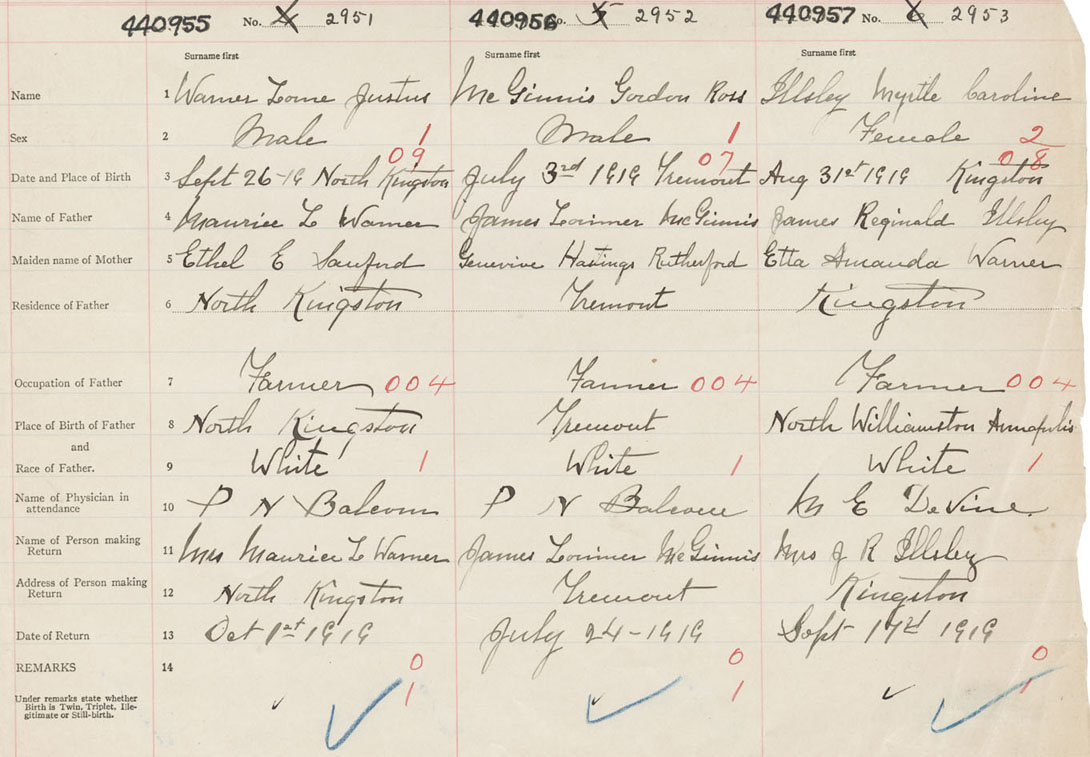 440955 No. 4 2951 440956 No. 5 2952 440957 No. 6 2953
Surname first Surname first Surname first
Name 1 Warner Lorne Justus McGinnis Gordon Ross Illsley Myrtle Caroline
Sex 2 Male 1 Male 1 Female 2
09 07 08
Date and Place of Birth 3 Sept 26-19 North Kingston July 3rd 1919 Tremont Aug 31st 1919 Kingston
Name of Father 4 Maurice L Warner James Lorimer McGinnis James Reginald Illsley
Maiden name of Mother 5 Ethel E Sanford Genevive Hastings Rutherford Etta Amanda Warner
Residence of Father 6 North Kingston Tremont Kingston
Occupation of Father 7 Farmer 004 Farmer 004 Farmer 004
Place of Birth of Father 8 North Kingston Tremont North Williamston Annapolis
and
Race of Father. 9 White 1 White 1 White 1
Name of Physician in
attendance 10 P N Balcom P N Balcom M E DeVine.
Name of Person making
Return 11 Mrs Maurice L Warner James Lorimer McGinnis Mrs J R Illsley
Address of Person making
Return 12 North Kingston Tremont Kingston
Date of Return 13 Oct 1st 1919 July 24-1919 Sept 17d 1919
REMARKS 14 0 0 0
Under remarks state whether 1 1 1
Birth is Twin, Triplet, Ille-
gitimate or Still-birth.